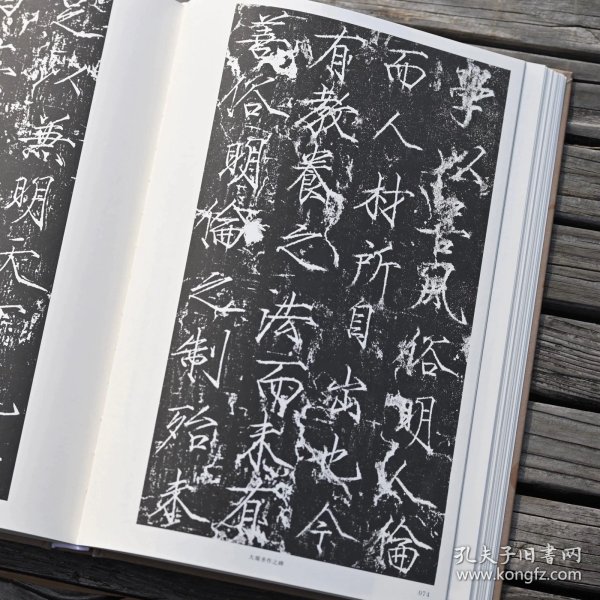 學以善風俗明人倫
而人材所自出也今
有教養之法而未有
善俗明倫之制殆未
足以兼明天
大觀聖作之碑
073
孔夫子旧书网
www.kongfz.com